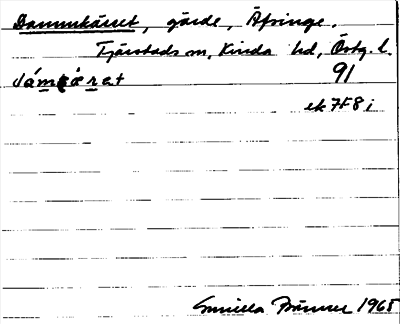 Dammkärret, gärde, Äpinge,
Tjärstads sn, Kinda hd, Östg. l.
dámkæ̀ret 91
ek 7F8 i
Gunilla 1965